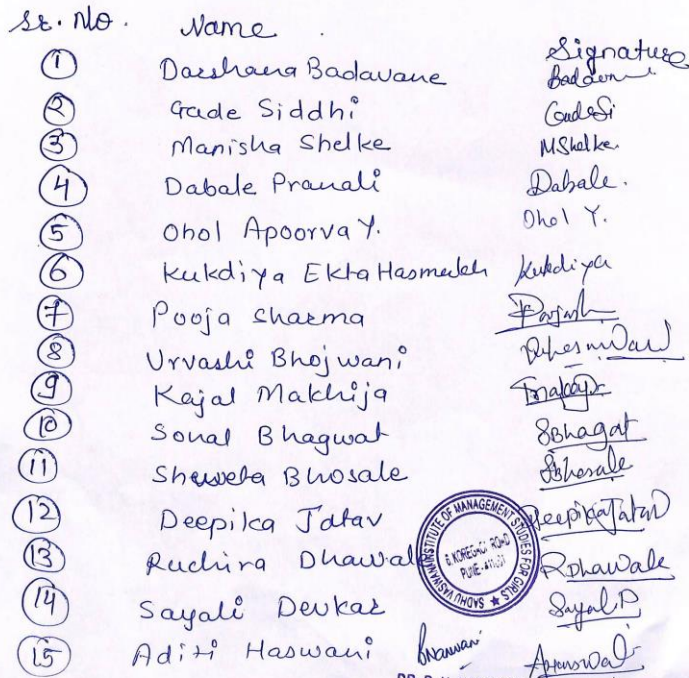 Sr. No. Name. Signature
1 Darshana Badavane
2 Gade Siddhi
3 Manisha Shelke MShelke.
4 Dabale Pranali Dabale.
5 Ohol Apoorva Y. Ohol Y.
6 Kukdiya Ekta Hasmukh Kukdiya
7 Pooja Sharma
8 Urvashi Bhojwani
9 Kajal Makhija
10 Sonal Bhagwat SBhagat
11 Shweta Bhosale SBhosale
12 Deepika Jatav Deepika Jatav
13 Ruchira Dhawale RDhawale
14 Sayali Devkar Sayali.D
15 Aditi Haswani
SADHU VASWANI INSTITUTE OF MANAGEMENT STUDIES FOR GIRLS
6, KOREGAON ROAD
PUNE-411001